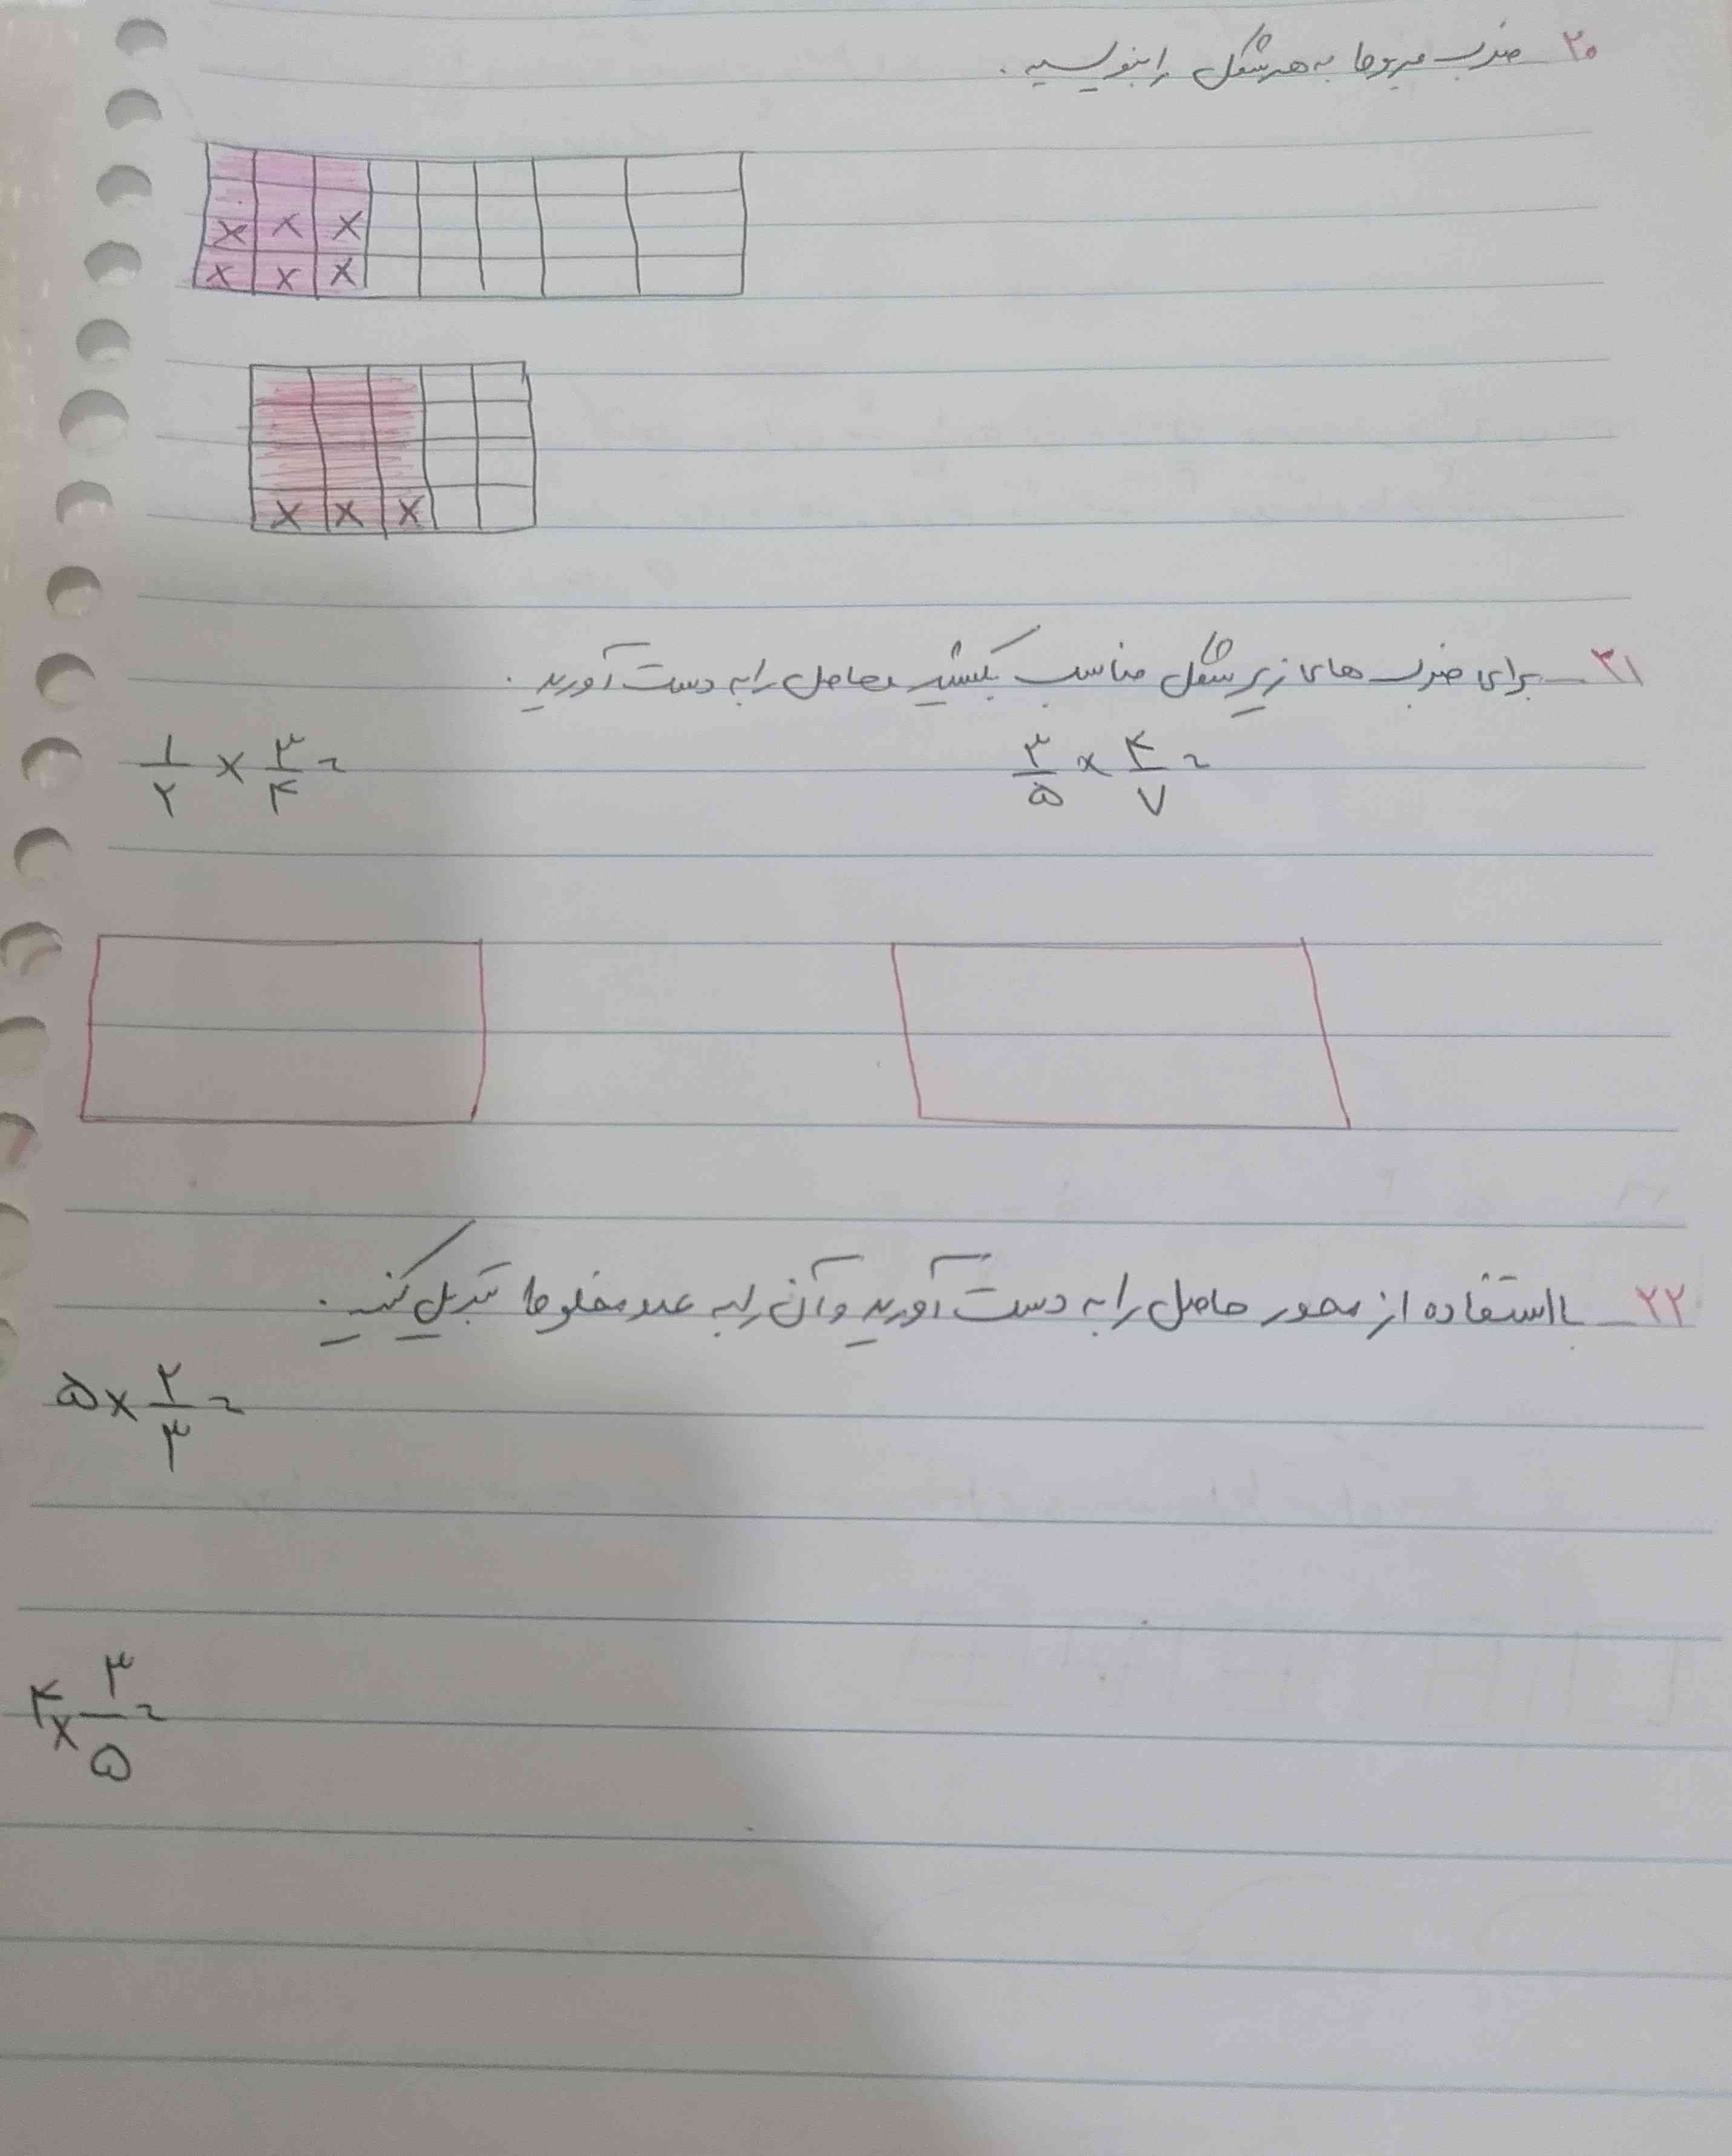 ۲۰_ ضرب مربوط به هر شکل را بنویسید.
× × ×
× × ×
× × ×
۲۱_ برای ضرب های زیر شکل مناسب بکشید حاصل را به دست آورید.
۱/۲ × ۳/۴ = ۳/۵ × ۴/۷ =
۲۲_ با استفاده از محور حاصل را به دست آورید و آن را به عدد مخلوط تبدیل کنید.
۵ × ۲/۳ =
۴ × ۳/۵ =